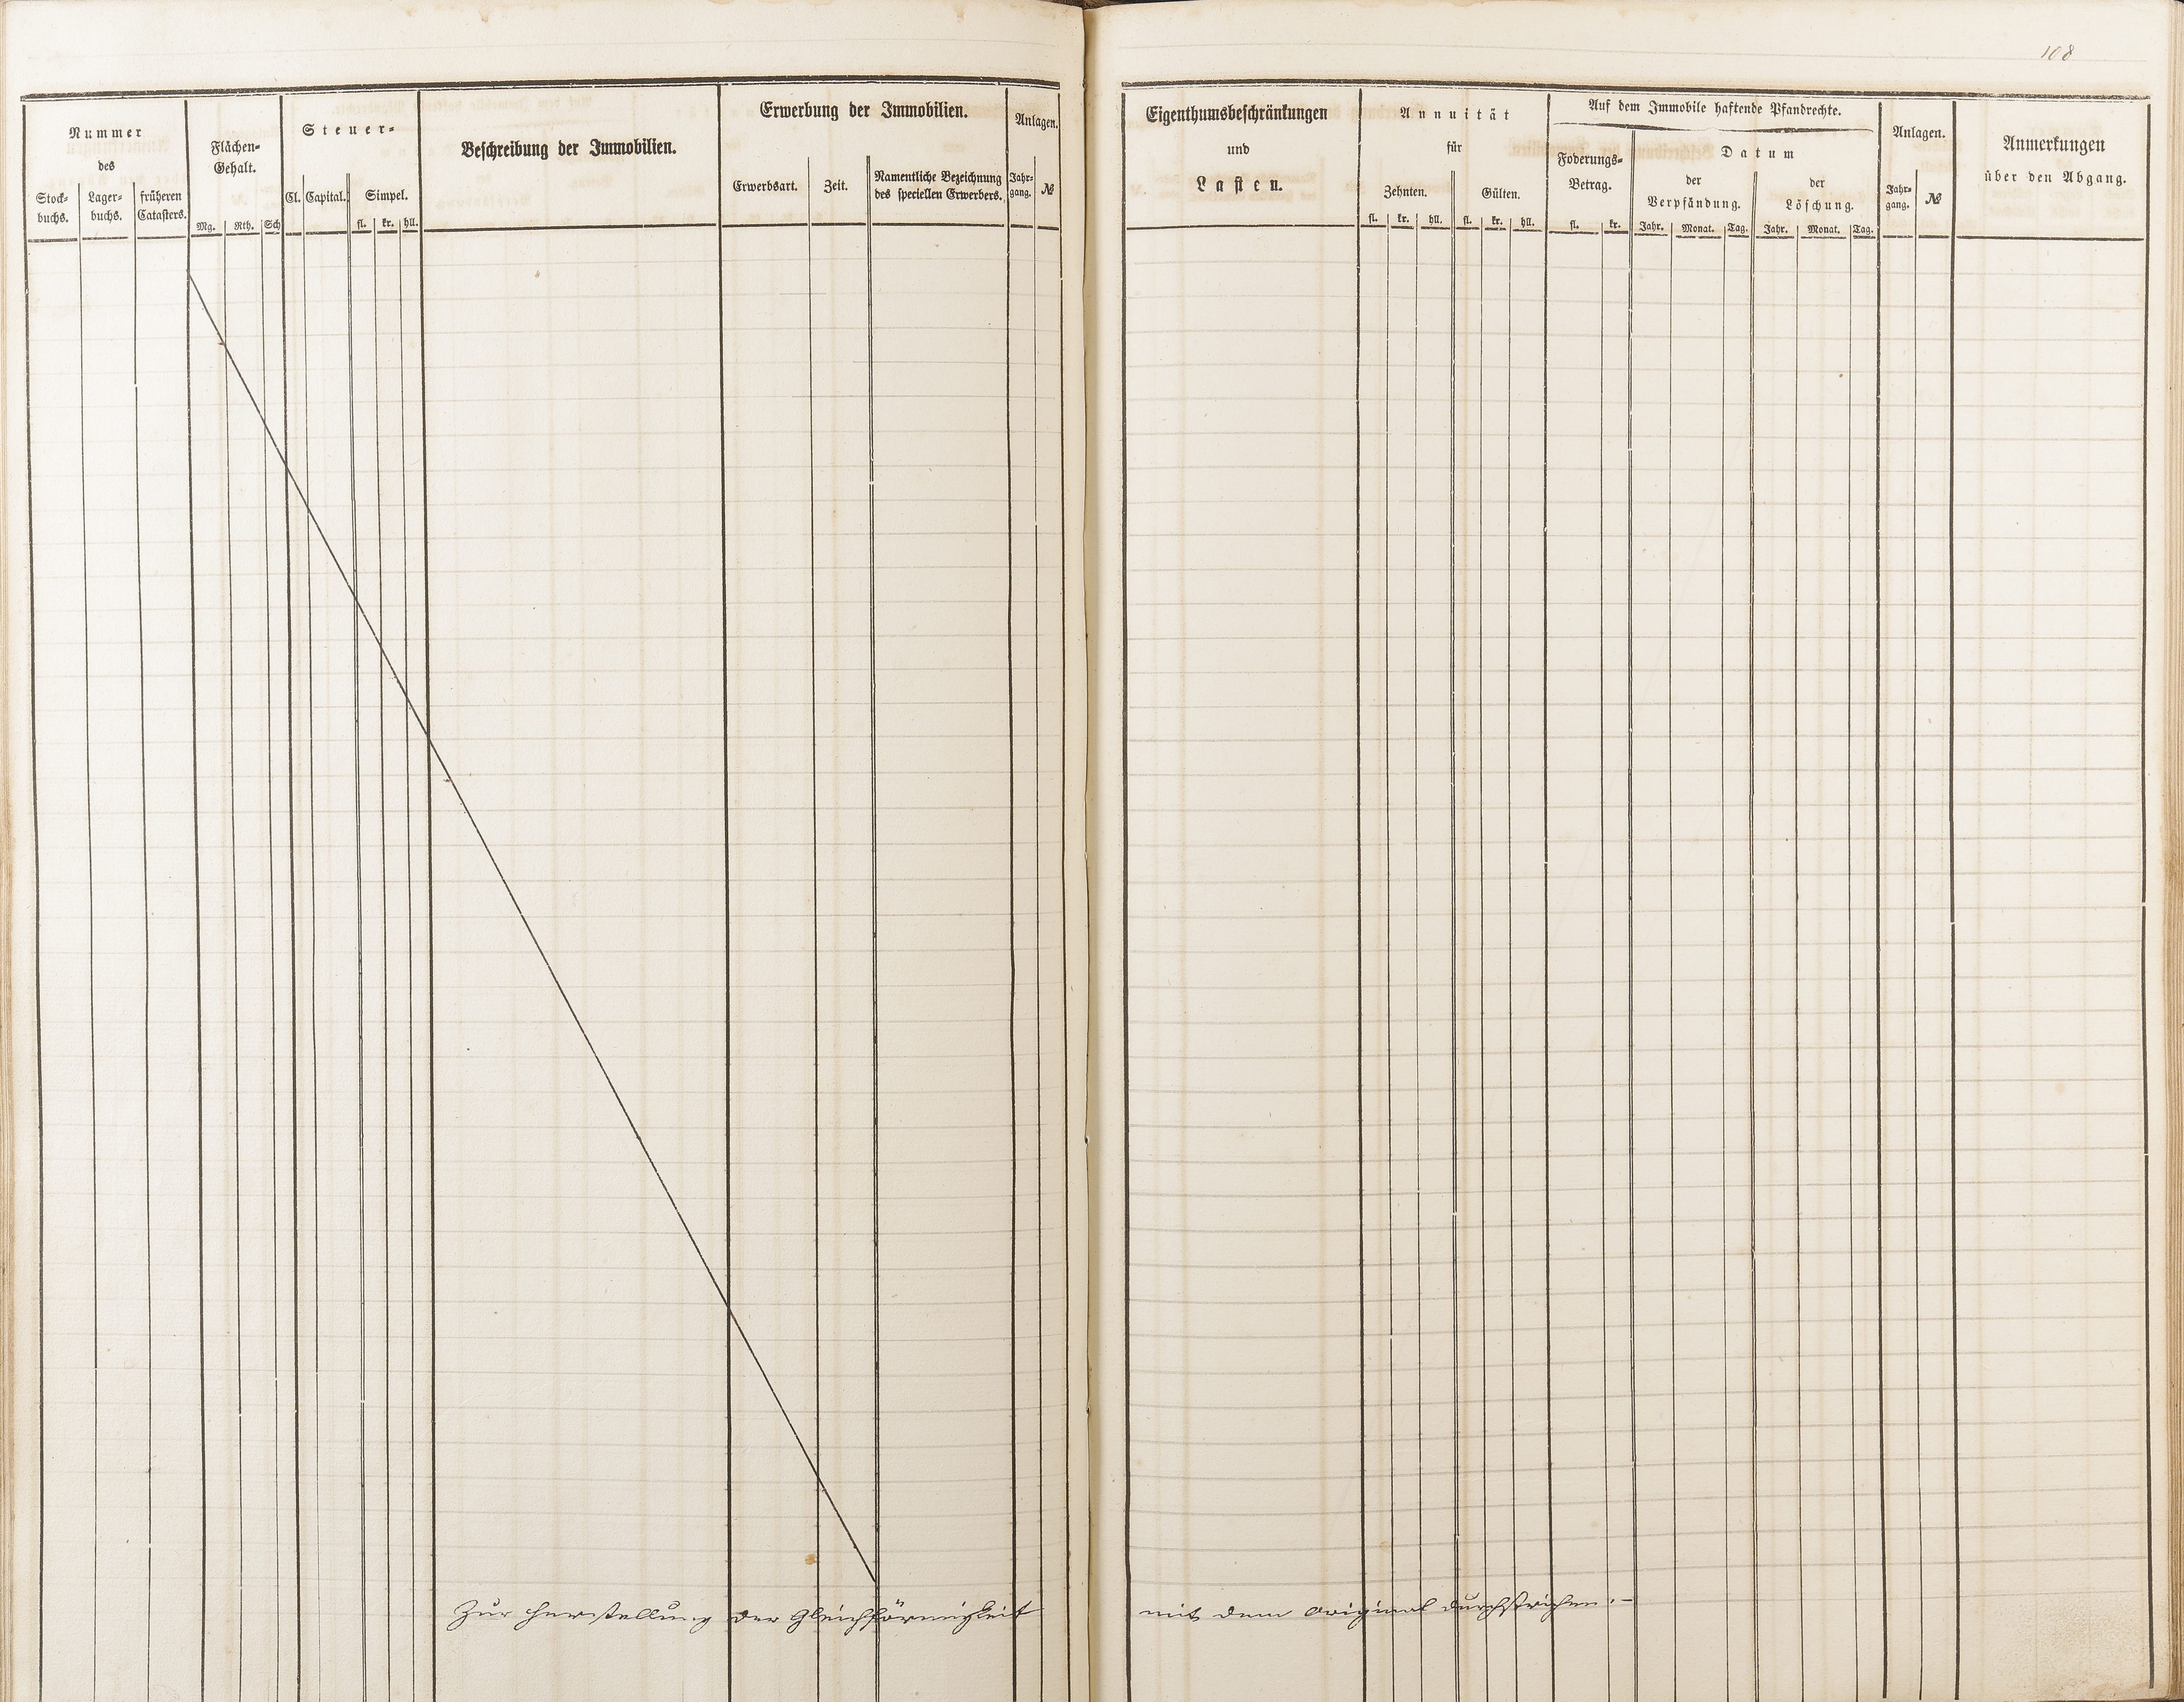 108
Nummer
des
Stock-
buchs.
Lager-
buchs.
früheren
Catasters.
Flächen-
Gehalt.
Mg.
Rth.
Sch
Steuer-
Cl.
Capital.
Simpel.
fl.
kr.
hll.
Beschreibung der Immobilien.
Erwerbung der Immobilien.
Erwerbsart.
Zeit.
Namentliche Bezeichnung
des speciellen Erwerbers.
Anlagen.
Jahr-
gang.
№
Eigenthumsbeschränkungen
und
Lasten.
Annuität
für
Zehnten.
fl.
kr.
hll.
Gülten.
fl.
kr.
hll.
Auf dem Immobile haftende Pfandrechte.
Foderungs-
Betrag.
fl.
kr.
Datum
der
Verpfändung.
Jahr.
Monat.
Tag.
der
Löschung.
Jahr.
Monat.
Tag.
Anlagen.
Jahr-
gang.
№
Anmerkungen
über den Abgang.
Zur Herstellung der Gleichförmigkeit mit dem Original durchstrichen.-